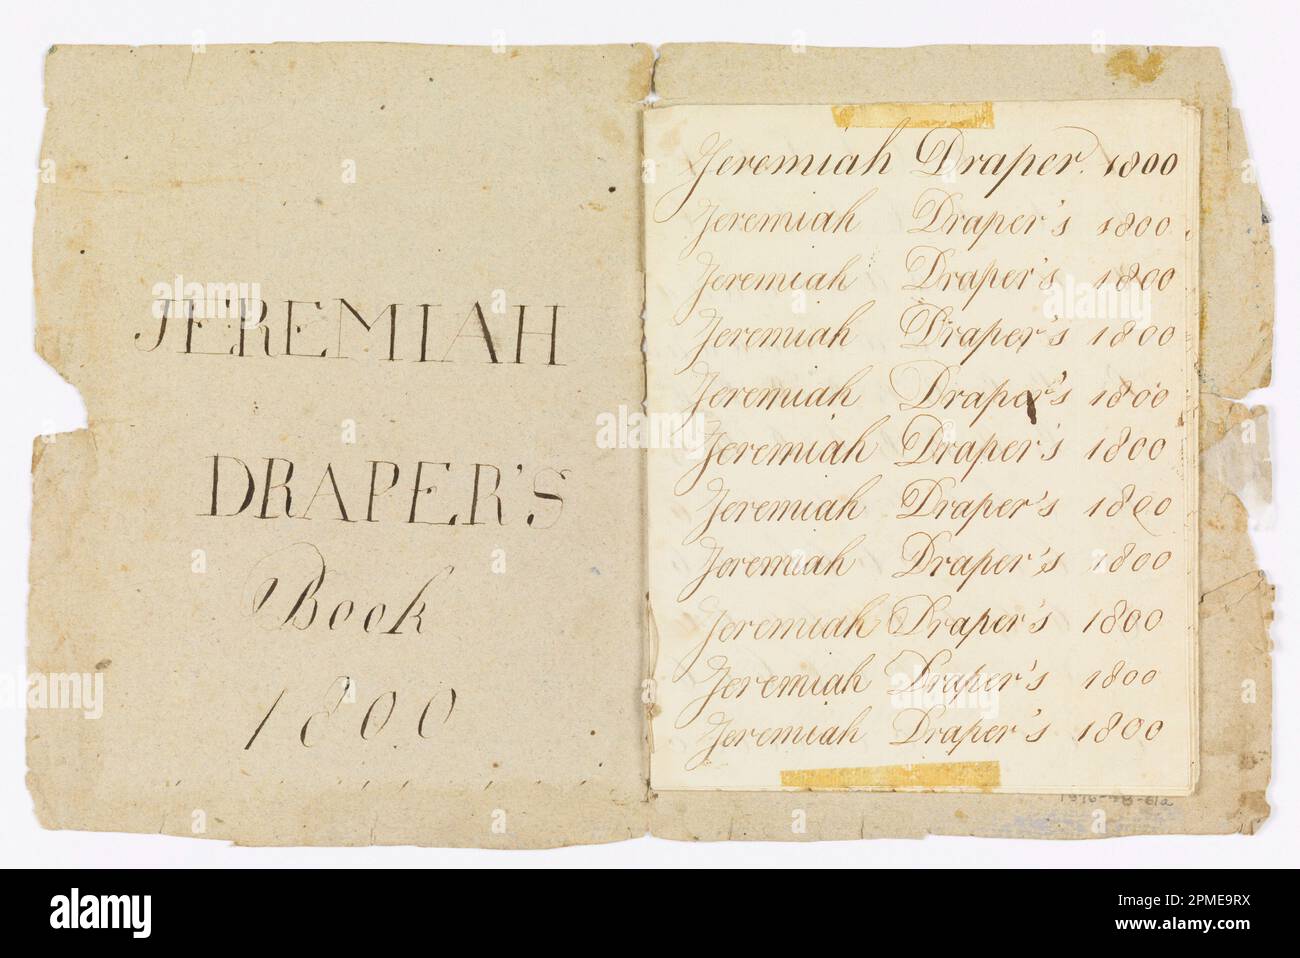 JEREMIAH
DRAPER'S
Book
1800
Jeremiah Draper. 1800
Jeremiah Draper's 1800
Jeremiah Draper's 1800
Jeremiah Draper's 1800
Jeremiah Draper's 1800
Jeremiah Draper's 1800
Jeremiah Draper's 1800
Jeremiah Draper's 1800
Jeremiah Draper's 1800
Jeremiah Draper's 1800
Jeremiah Draper's 1800
alamy
alamy
Image ID: 2PME9RX
www.alamy.com